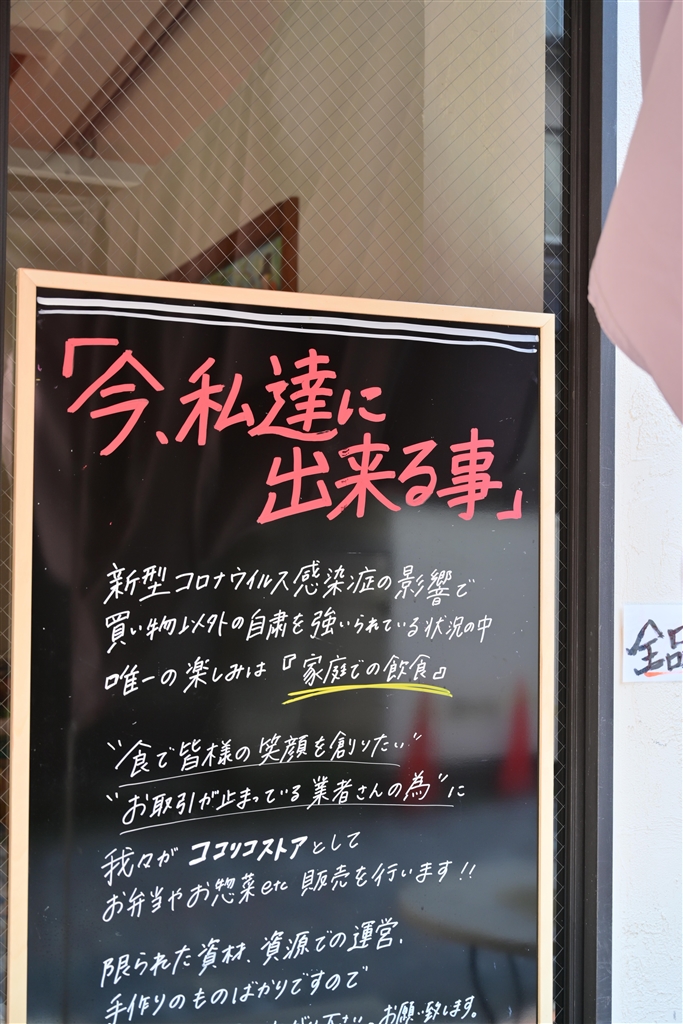 「今、私達に
出来る事」
新型コロナウイルス感染症の影響で
買い物以外の自粛を強いられている状況の中
唯一の楽しみは『家庭での飲食』
"食で皆様の笑顔を創りたい"
"お取引が止まっている業者さんの為"に
我々がココリコストアとして
お弁当やお惣菜etc 販売を行います!!
限られた資材、資源での運営、
手作りのものばかりですので
お願い致します。
全品